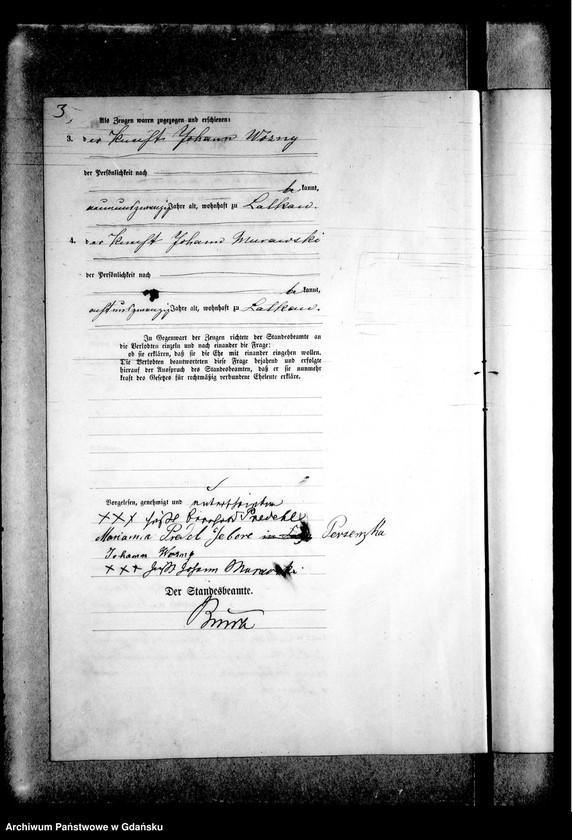 3.
Als Zeugen waren zugezogen und erschienen:
3. der Knecht Johann Wozny
der Persönlichkeit nach
be kannt,
neunundzwanzig Jahre alt, wohnhaft zu Lalkau.
4. der Knecht Johann Murawski
der Persönlichkeit nach
be kannt,
achtundzwanzig Jahre alt, wohnhaft zu Lalkau.
In Gegenwart der Zeugen richtete der Standesbeamte an
die Verlobten einzeln und nach einander die Frage:
ob sie erklären, daß sie die Ehe mit einander eingehen wollen.
Die Verlobten beantworteten diese Frage bejahend und erfolgte
hierauf der Ausspruch des Standesbeamten, daß er sie nunmehr
kraft des Gesetzes für rechtmäßig verbundene Eheleute erkläre.
Vorgelesen, genehmigt und unterschrieben
+++ Predehl
Marianna Predel Jebore Perzenska
Johann Wozny
+++ Johann Murawski
Der Standesbeamte.
Archiwum Państwowe w Gdańsku